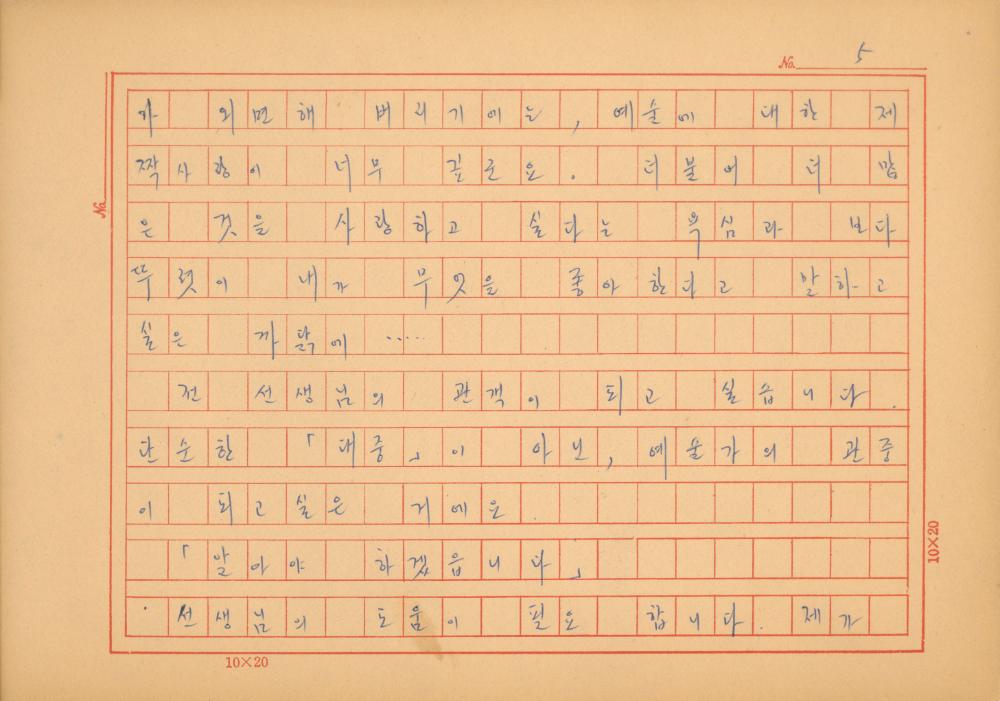 No. 5
가 외면해 버리기에는, 예술에 대한 제
짝사랑이 너무 깊군요. 더불어 더 많
은 것을 사랑하고 싶다는 욕심과 보다
뚜렷이 내가 무엇을 좋아한다고 말하고
싶은 까닭에 ‥‥‥
전 선생님의 관객이 되고 싶습니다.
단순한 「대중」이 아닌, 예술가의 관중
이 되고 싶은 거예요.
「알아야 하겠읍니다」
선생님의 도움이 필요 합니다. 제가
No.
10×20
10×20